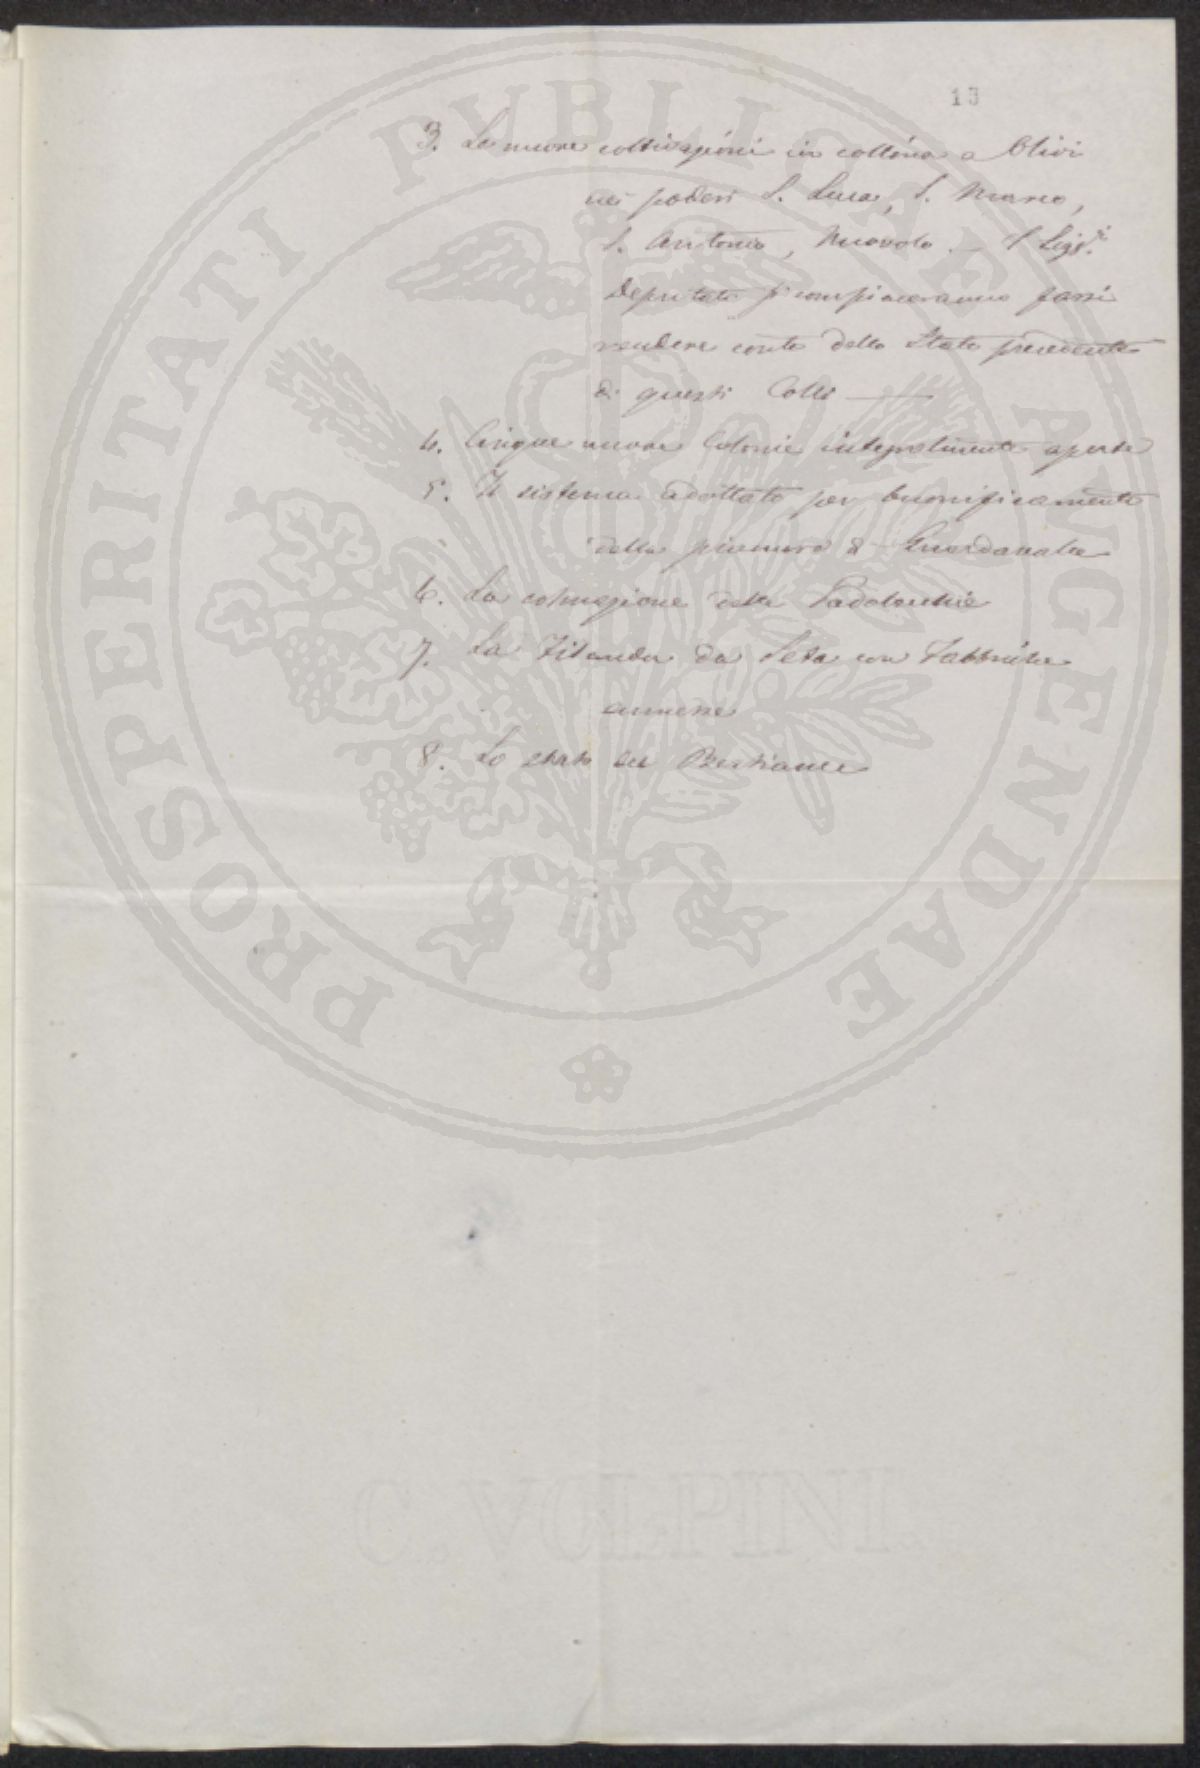 13
3. Le nuove coltivazioni in collina a Olivi
nei poderi S. Luca, S. Marco,
S. Antonio, Nuovolo. — I Sigg.ri
Deputati si compiaceranno farsi
rendere conto dello Stato precedente
di questi Colli —
4. Cinque nuove Colonie integralmente aperte
5. Il sistema adottato per buonificamento
della pianura di
6. La colmazione delle
7. La Filanda da Seta con Fabbriche
annesse
8. Lo stato del Bestiame
PROSPERITATI PVBLICAE AVGENDAE
C. VOLPINI